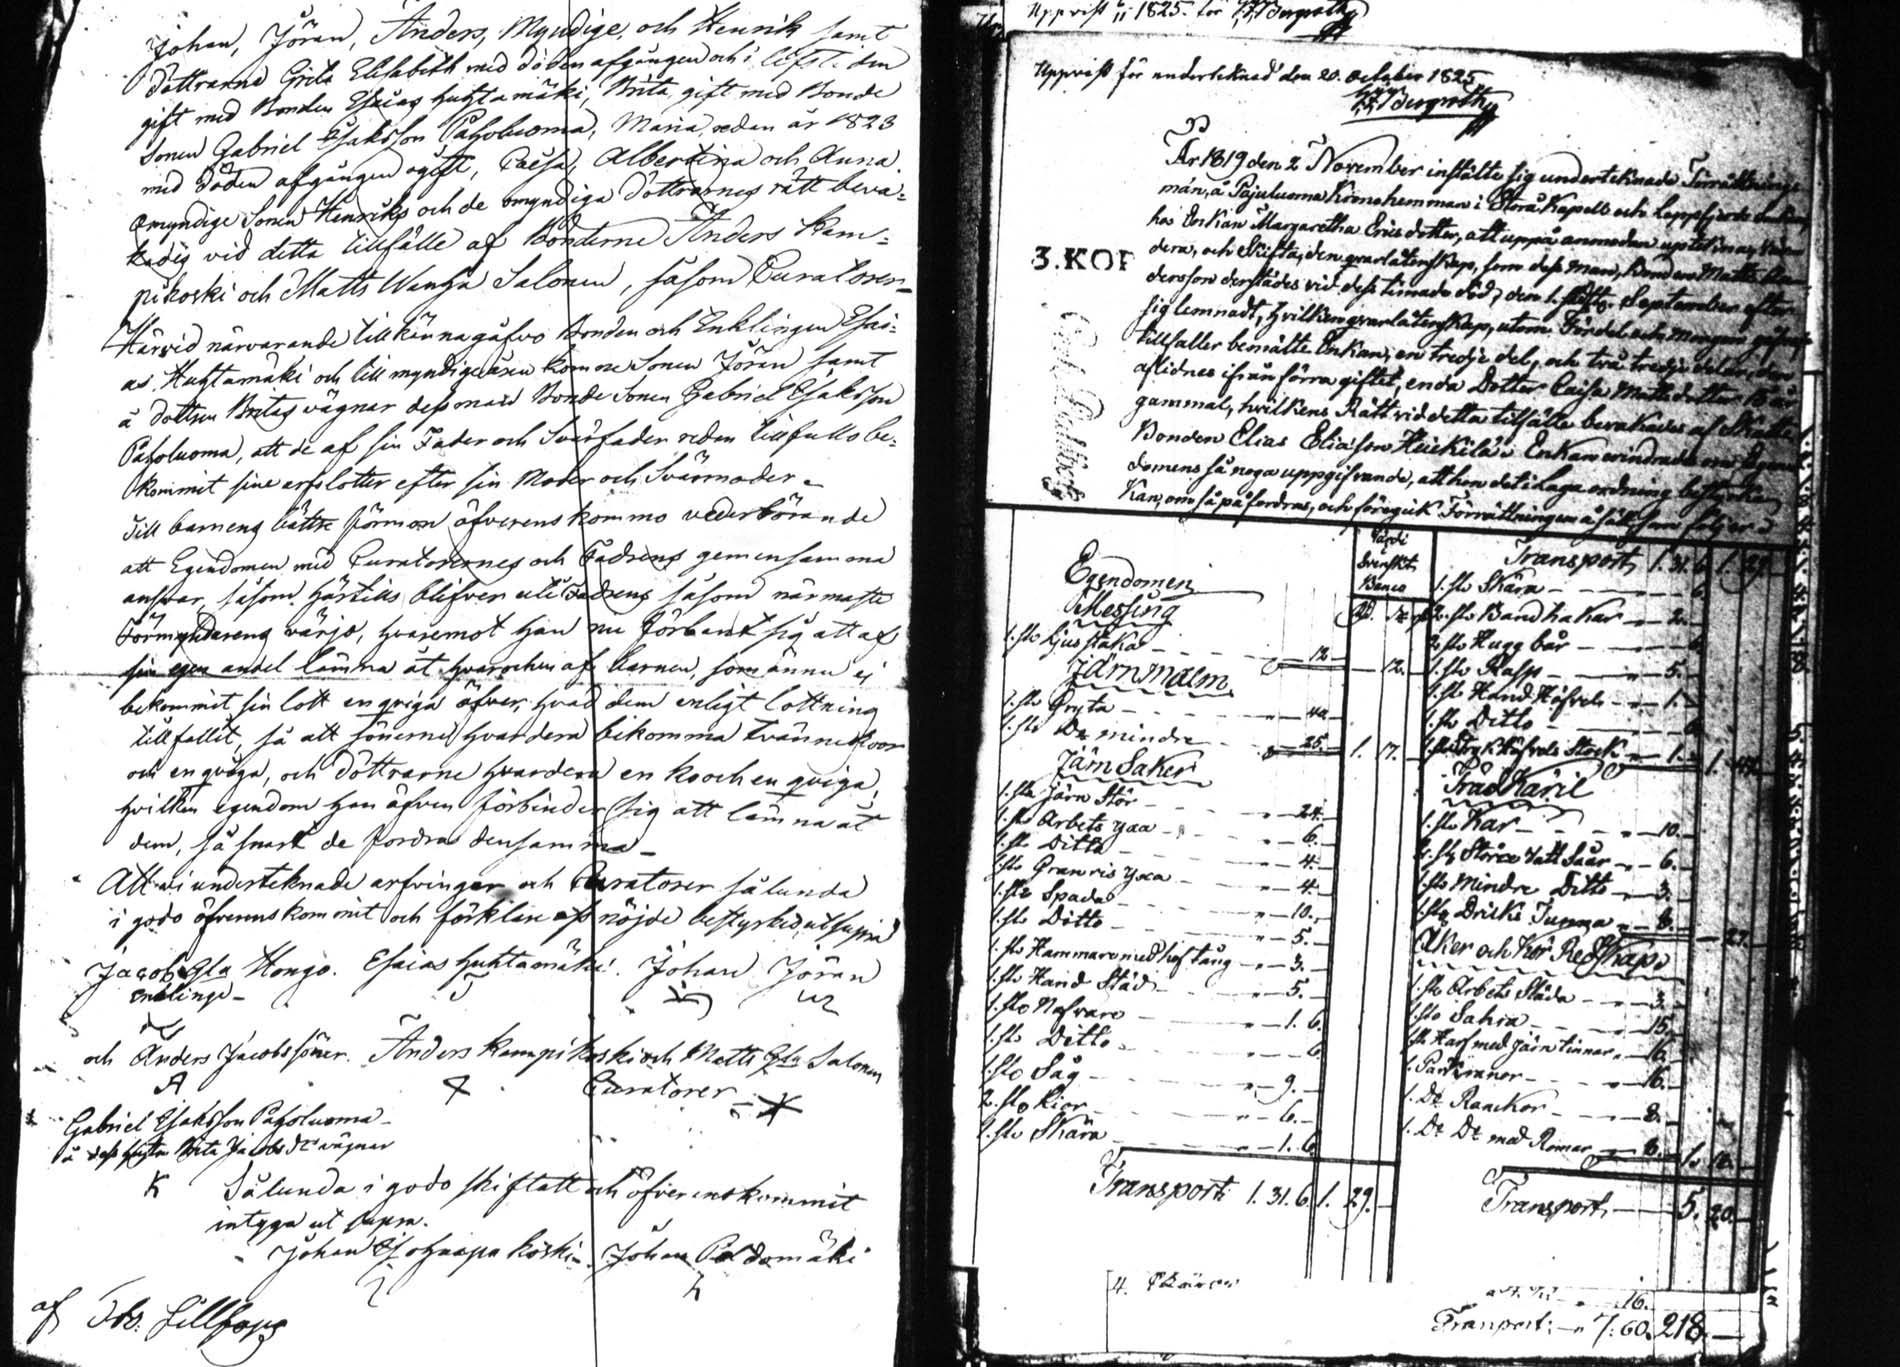 Johan, Jöran, Anders, Myndige, och Henrik samt
döttrarna Greta Elisabeth med döden afgången och i lifstiden
gift med Bonden Esaias Huhtamäki, Brita, gift med Bonde
Sonen Gabriel Esaksson Pajoluoma, Maria, redan år 1823
med döden afgången ogift, Caisa, Albertina och Anna.
omyndige Sonen Henriks och de omyndiga döttrarnes rätt beva=
kades vid detta tillfälle af Bönderne Anders Kam=
pikoski och Matts Wanha Salonen, såsom Curatorer
Härvid närvarande tillkännagåfvo Bonden och Enklingen Esai=
as Huhtamäki och till myndige åren komne Sonen Jöran samt
å dottren Britas vägnar dess man Bonde Sonen Gabriel Esaksson
Pajoluoma, att de af sin Fader och Svärfader redan tillfullo be=
kommit sine arfslotter efter sin Moder och Svärmoder
Till barnens bättre förmon öfverenskommo vederbörande
att Egendomen med Curatorernes och Fadrens gemensamma
ansvar, såsom härtills blifver uti Fadrens såsom närmaste
Förmyndarens värjo, hvaremot han nu förband sig att af
sin egen andel lämna åt hvarochen af barnen, som ännu ej
bekommit sin lott en qviga öfver, hvad dem enligt lottning
tillfallit, så att sönerne hvardera bekomma tvänne koor
och en qviga, och döttrarne hvardera en ko och en qviga,
hvilken egendom han äfven förbinder sig att lämna åt
dem, så snart de fordra densamma
Att vi underteknade arfvingar och Curatorer sålunda
i godo öfverenskommit och förklare oss nöjde bestyrkes ut supra
Jacob Gla Hongo. Esaias Huhtamäki. Johan Jöran
enklinge
och Anders Jacobssöner. Anders Kampikoski och Matts Gla Salonen
A Curatorer
Gabriel Esaksson Pajoluoma
å dess hustru Brita Jacobs dr vägnar
K Sålunda i godo skiftatt och öfverenskommit
intyga ut supra.
Johan koski Johan
af
Upprist 1825 för
Upprist för underteknad den 20. October 1825
År 1819 den 2 November instälte sig underteknade Förrättnings
män, å Pajuluoma Kronohemman i Storå Kapell och Lappfjerds
hos Enkan Margaretha Ericsdotter, att uppå anmodan upteckna, vär
dera, och Skifta, den qvarlåtenskap, som dess man, Bonden Matts An
dersson derstädes vid dess timade död, den 1. September efter
sig lemnadt, hvilken qvarlåtenskap, utom Fördel och Morgongåfva
tillfaller bemälte Enkan, en tredje del, och två tredje delar, den
aflidnes ifrån förra giftet, enda Dotter Caisa Mattsdotter
gammal, hvilkens Rätt vid detta tilfälle bevakades af
Bonden Elias Eliasson Heickilä. Enkan erindrades om Egen
domens så noga uppgifvande, att hon det i laga ordning
Kan, om så påfordras, och föregick Förrättningen å sätt som följer
3. KOP
Värde
Svenskt
Banco
Egendomen
Messing
1. st. Ljusstaka 12 12.
Järnmalm
1. st. Gryta 40.
1. st. Do mindre 25. 1. 17.
Järn Saker
1. st. Järn Stör 24.
1. st. Arbets yxa 6.
1. st. Ditto 4.
1. st. Granris yxa 4.
1. st. Spada 10.
1. st. Ditto 5.
1. st. Hammare med hoftång 3.
1. st. Hand Städ 5.
1. st. Nafvare 1. 6.
1. st. Ditto 6.
1. st. Såg 9.
2. st. Liar 6.
1. st. Skära 1. 6.
Transport 1. 31. 6. 1. 29.
Transport 1. 31. 6. 1. 29.
1. st. Skära 6.
2. st. Bandhakar 2.
2. st. Hugg bår 6.
1. st. Rasp 5.
1. st. Hand Häfvel 1.
1. st. Ditto 6.
Träd Käril
1. st. Kar 10.
2. st. Större Vatt Såar 6.
1. st. Mindre Ditto 3.
1. st. Dricks Tunna 8.
27.
Åker och Kör Redskap
1. st. Arbets Släda 3.
1. st. Sahra 15.
1. st. Harf med järn tinnar 16.
1. Par 16.
1. Do Ranckor 8.
1. Do Do med Romar 6.
Transport 5. 20.
4.
16.
Tranport: 7: 60. 218.